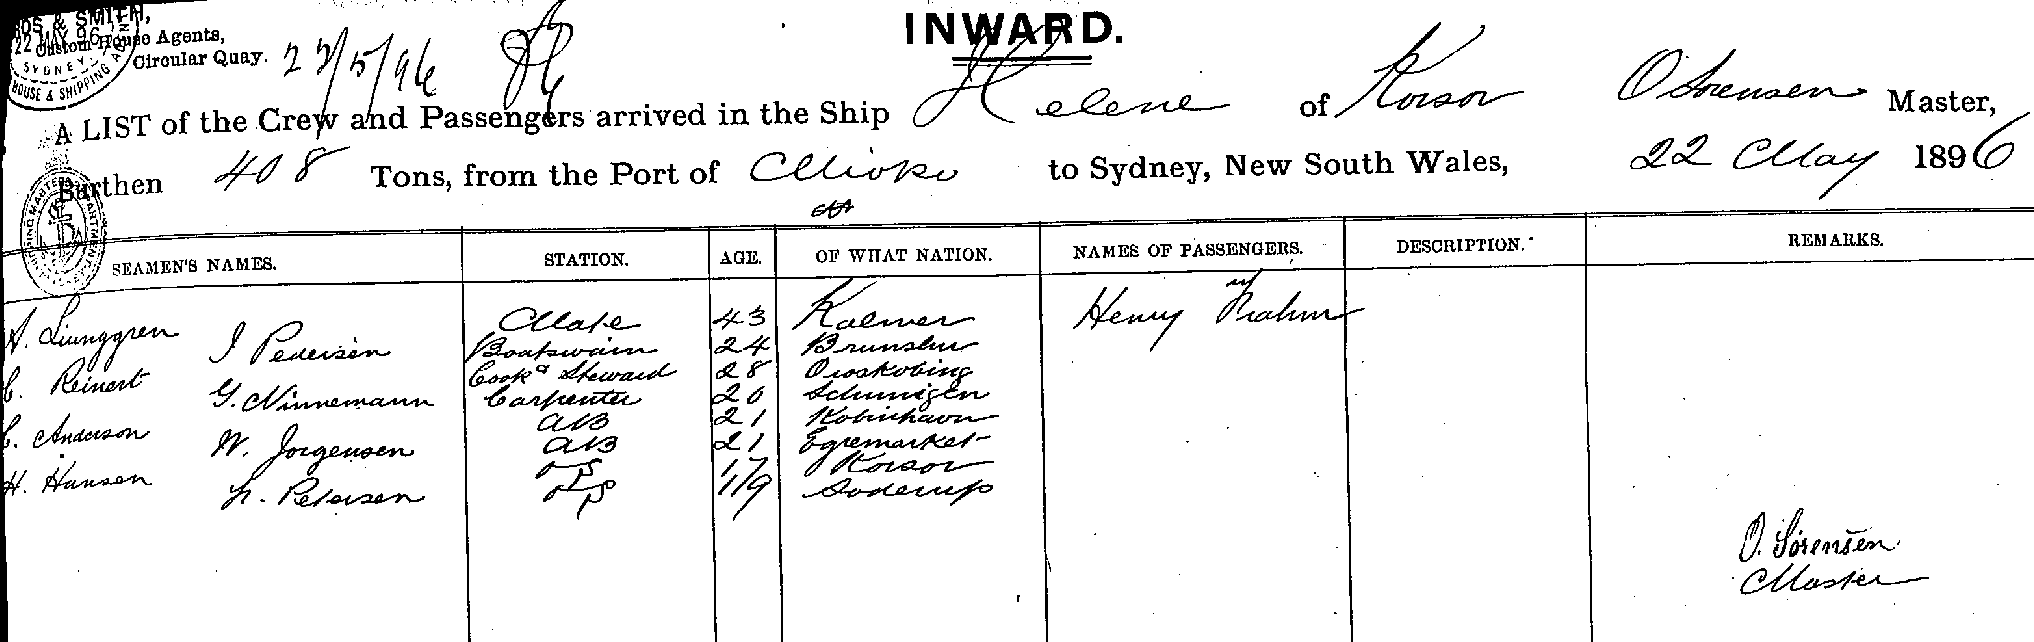 & SMITH,
22 MAY 96
Custom House Agents,
SYDNEY
Circular Quay.
HOUSE & SHIPPING
22/5/96
INWARD.
A LIST of the Crew and Passengers arrived in the Ship Helene of Korsor O Sorensen Master,
Burthen 408 Tons, from the Port of Mioko to Sydney, New South Wales, 22 May 1896
SEAMEN'S NAMES. STATION. AGE. OF WHAT NATION. NAMES OF PASSENGERS. DESCRIPTION. REMARKS.
A. Liunggren Mate 43 Kalmer Henry
J Pedersen Boatswain 24
C. Reinert Cook & Steward 28
G. Ninnemann Carpenter 20
C. Anderson AB 21
W. Jorgensen AB 21 Egremarket
H. Hansen OS 17 Korsor
L. Petersen OS 19 Soderup
O. Sörensen
Master